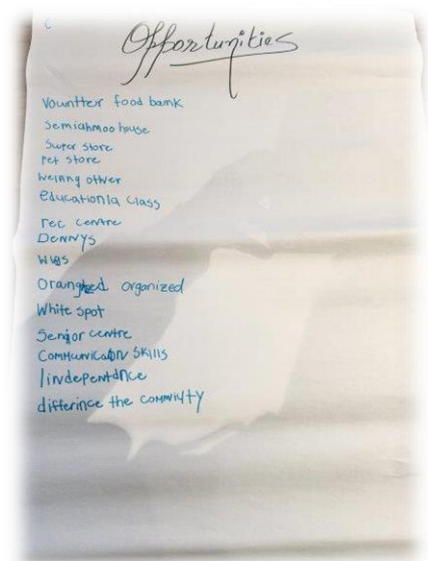 Opportunities
Vountter food bank
Semiahmoo house
Super store
Pet store
other
educationla class
rec centre
Dennys
organized
White spot
Senior centre
Communication skills
Iindependance
differince the